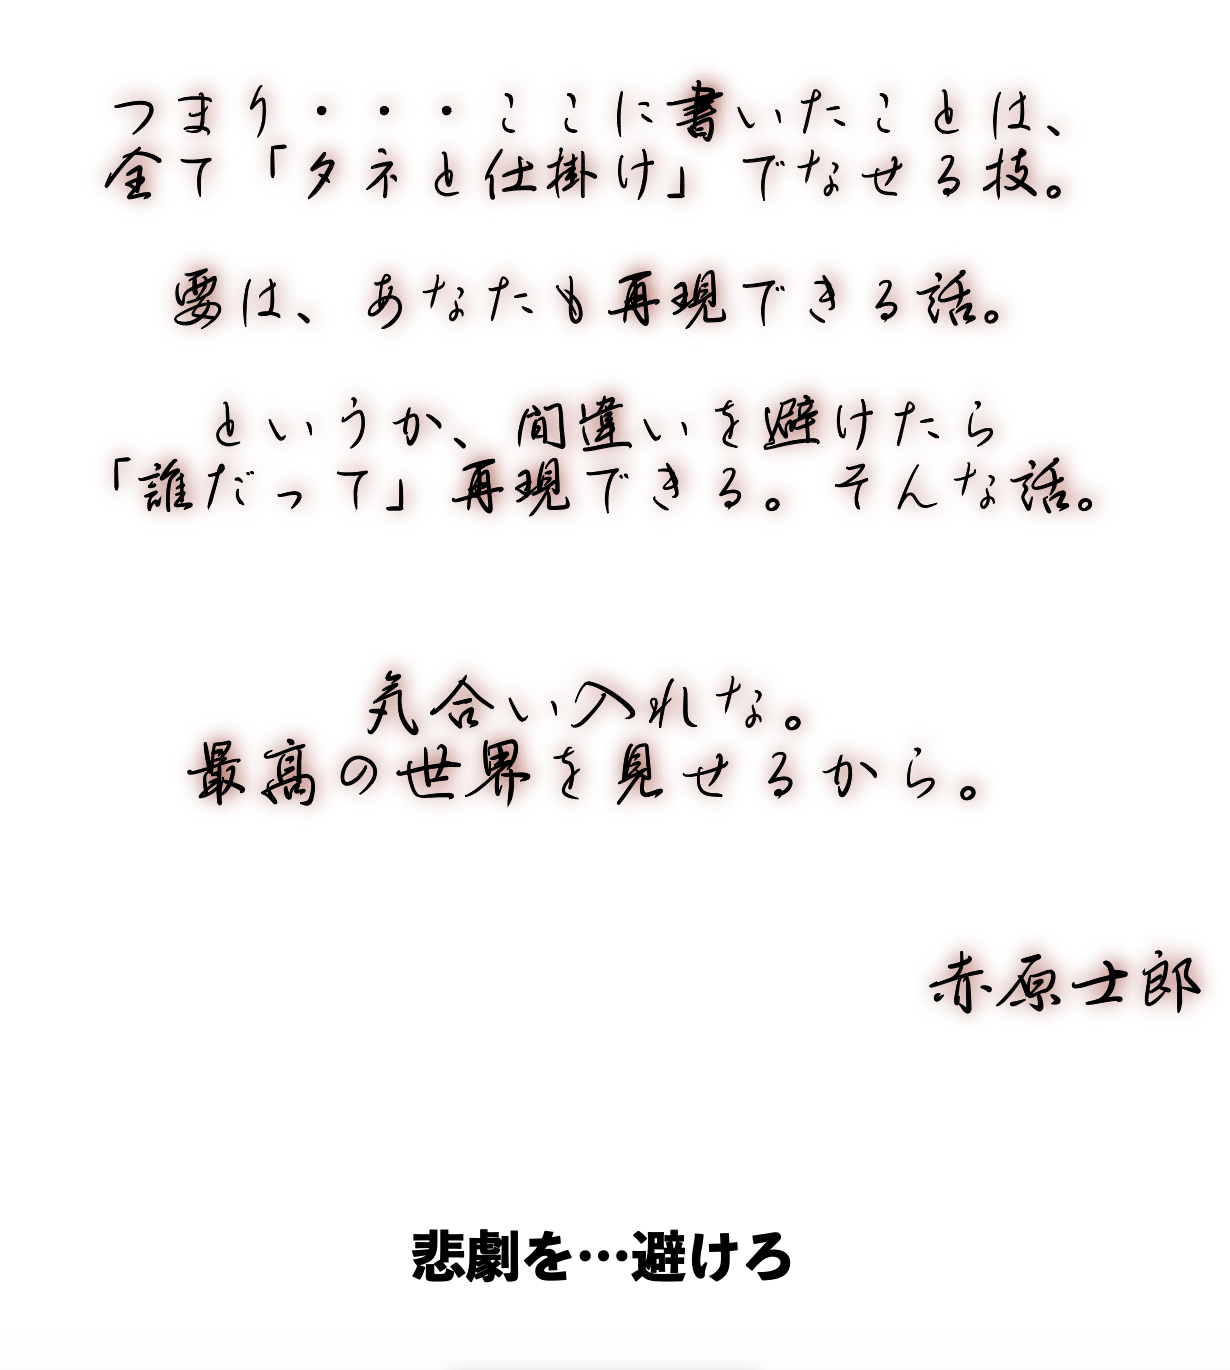 つまり・・・ここに書いたことは、
全て「タネと仕掛け」でなせる技。
要は、あなたも再現できる話。
というか、間違いを避けたら
「誰だって」再現できる。そんな話。
気合い入れな。
最高の世界を見せるから。
赤原士郎
悲劇を…避けろ